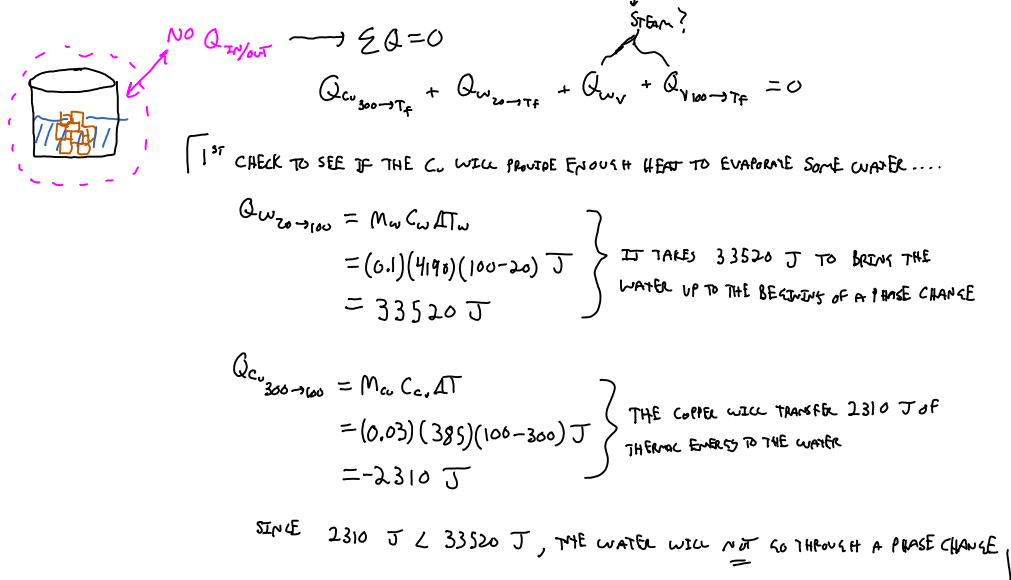 STEAM?
NO Q_IN/OUT → ΣQ=0
Q_Cu 300→Tf + Q_W 20→Tf + Q_WV + Q_V 100→Tf = 0
1ST CHECK TO SEE IF THE Cu WILL PROVIDE ENOUGH HEAT TO EVAPORATE SOME WATER....
Q_W 20→100 = Mw Cw ΔTw
= (0.1)(4190)(100-20) J
= 33520 J
IT TAKES 33520 J TO BRING THE
WATER UP TO THE BEGINING OF A PHASE CHANGE
Q_Cu 300→100 = Mcu Ccu ΔT
= (0.03)(385)(100-300) J
= -2310 J
THE COPPER WILL TRANSFER 2310 J OF
THERMAL ENERGY TO THE WATER
SINCE 2310 J < 33520 J, THE WATER WILL NOT GO THROUGH A PHASE CHANGE